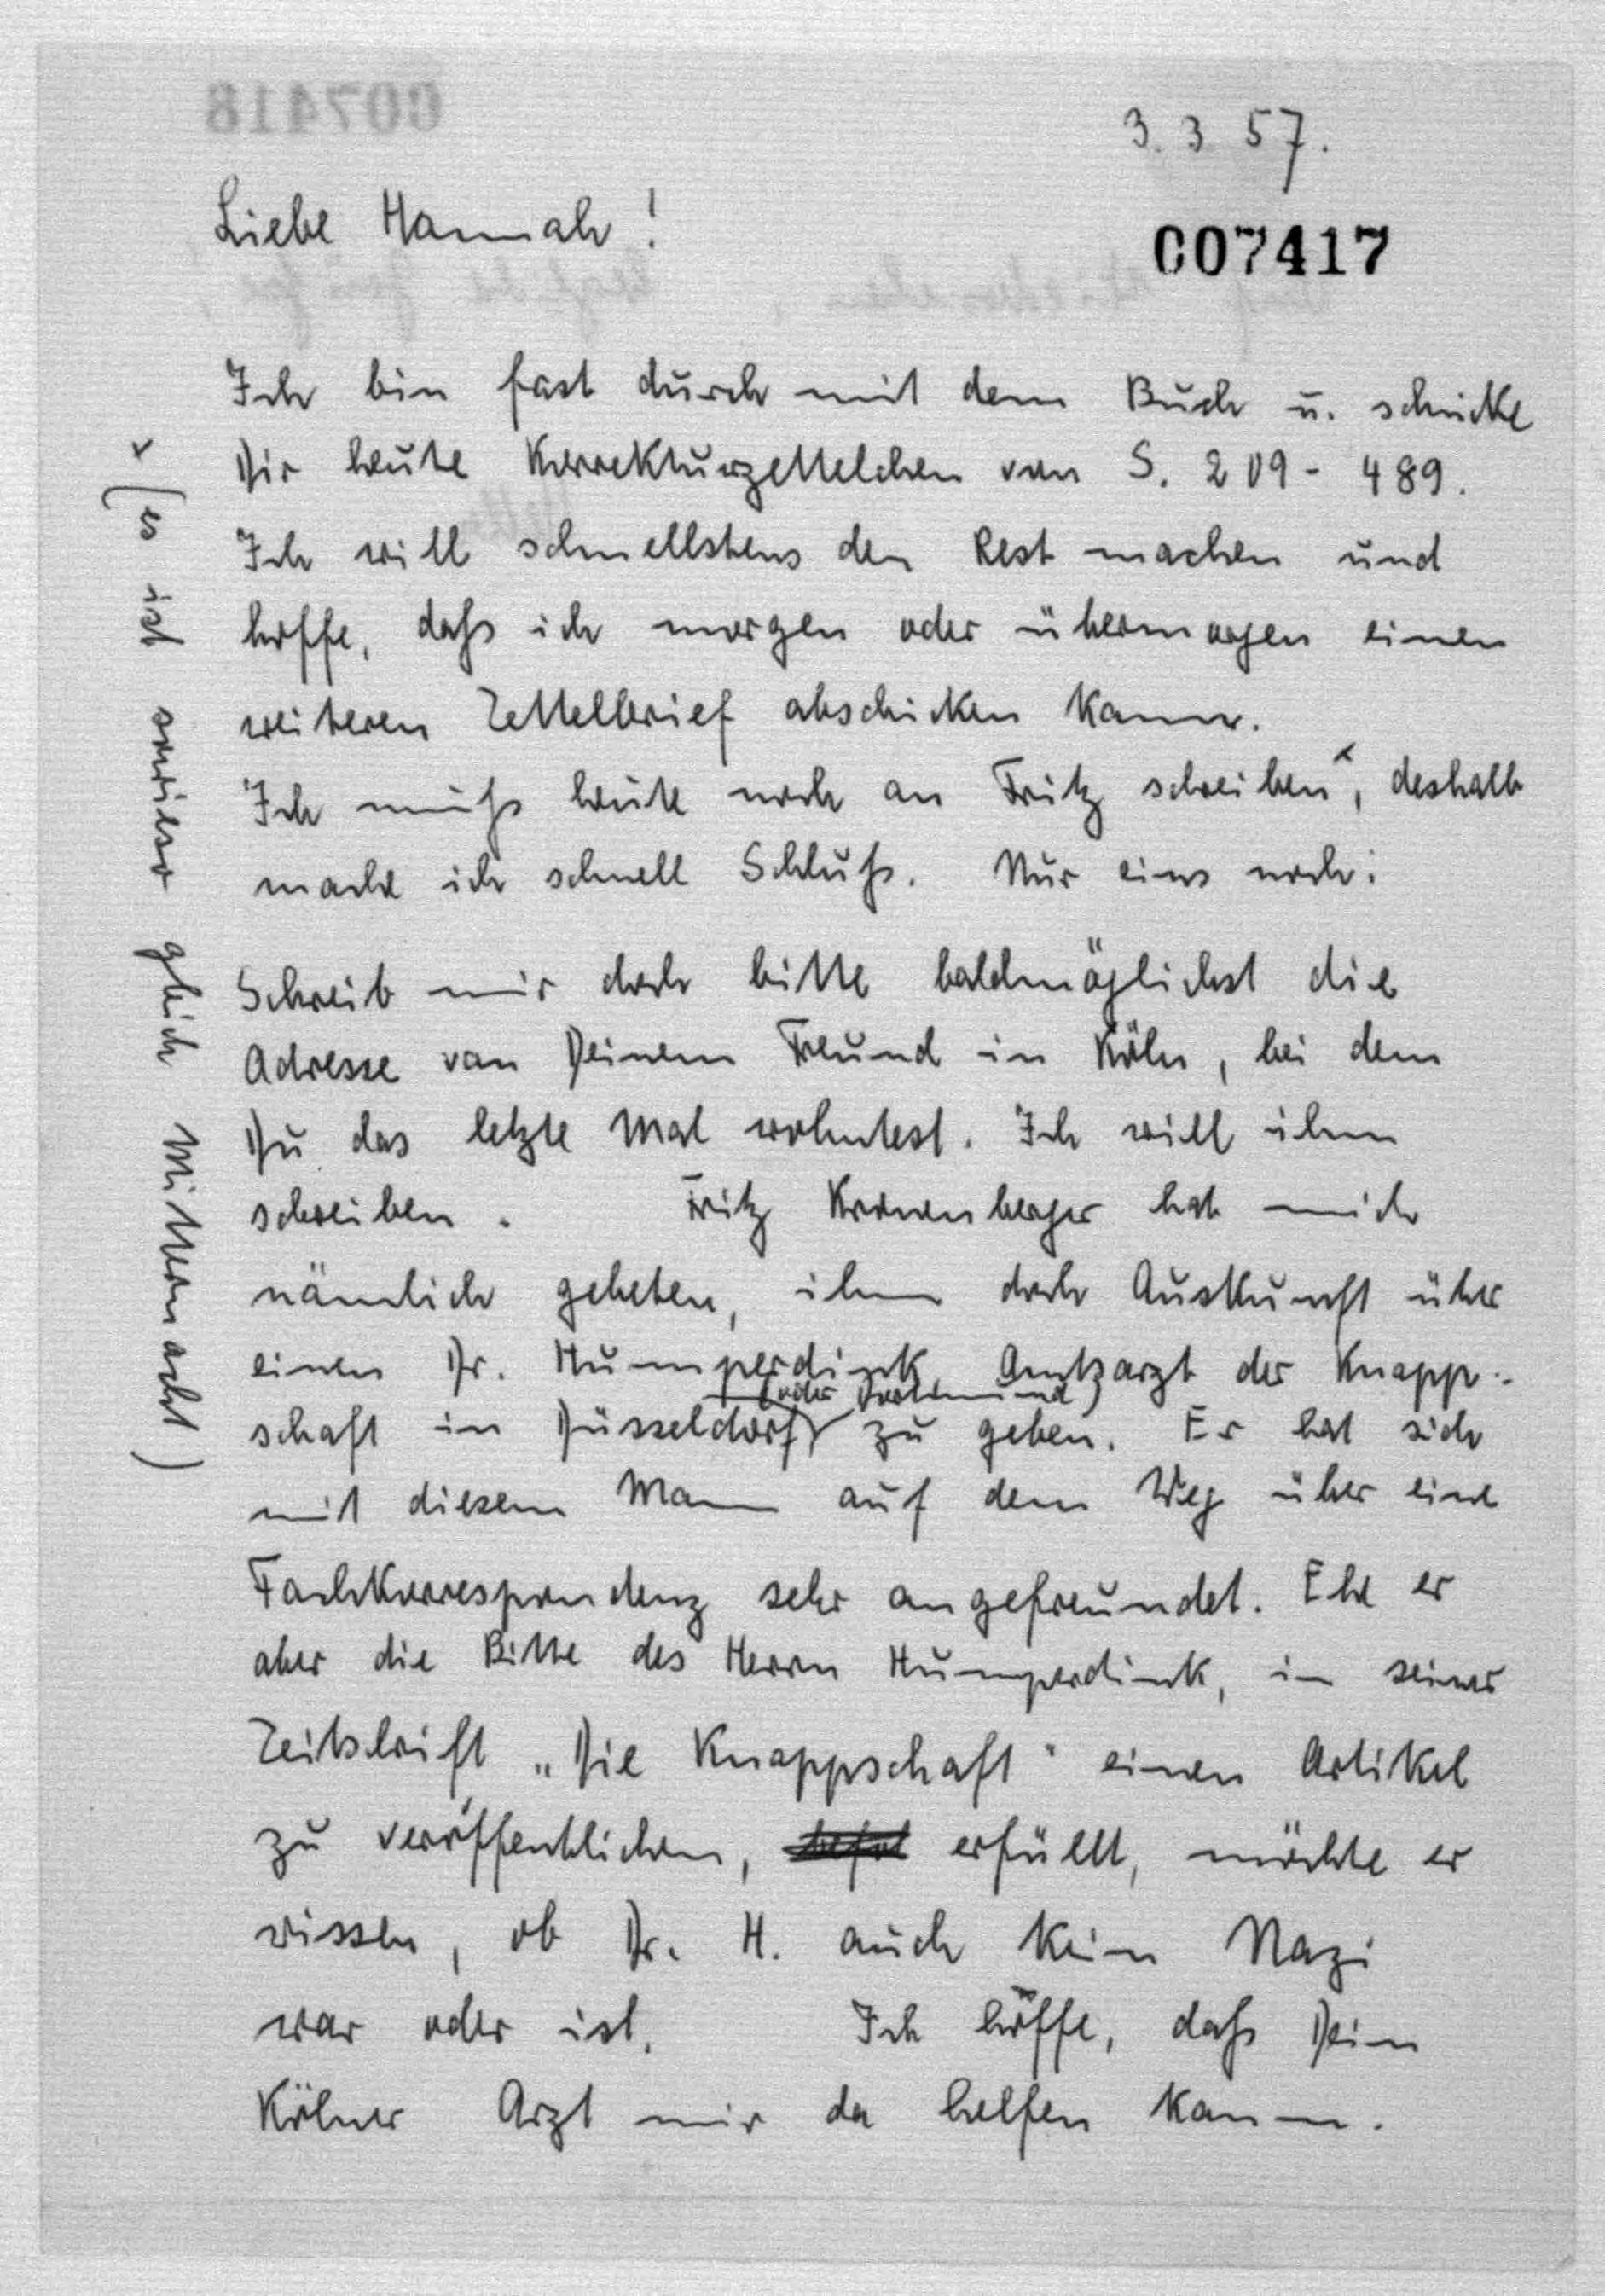 3. 3 57.
Liebe Hannah!
007417
Ich bin fast durch mit dem Buch u. schicke
Dir heute Korrekturzettelchen von S. 209 - 489.
Ich will schnellstens den Rest machen und
hoffe, dass ich morgen oder übermorgen einen
weiteren Zettelbrief abschicken kann.
Ich muss heute noch an Fritz schreiben x, deshalb
mache ich schnell Schluss. Nur eins noch:
Schreib mir doch bitte baldmöglichst die
Adresse von Deinem Freund in Köln, bei dem
Du das letzte Mal wohntest. Ich will ihm
schreiben. Fritz Kronenberger hat mich
nämlich gebeten, ihm doch Auskunft über
einen Dr. Humperdink, Amtsarzt der Knapp-
(oder Dortmund)
schaft in Düsseldorf zu geben. Er hat sich
mit diesem Mann auf dem Weg über eine
Fachkorrespondenz sehr angefreundet. Ehe er
aber die Bitte des Herrn Humperdink, in seiner
Zeitschrift „Die Knappschaft" einen Artikel
zu veröffentlichen, erfüllt, möchte er
wissen, ob Dr. H. auch kein Nazi
war oder ist. Ich hoffe, dass Dein
Kölner Arzt mir da helfen kann.
x (es ist sowieso gleich Mitternacht)
007418